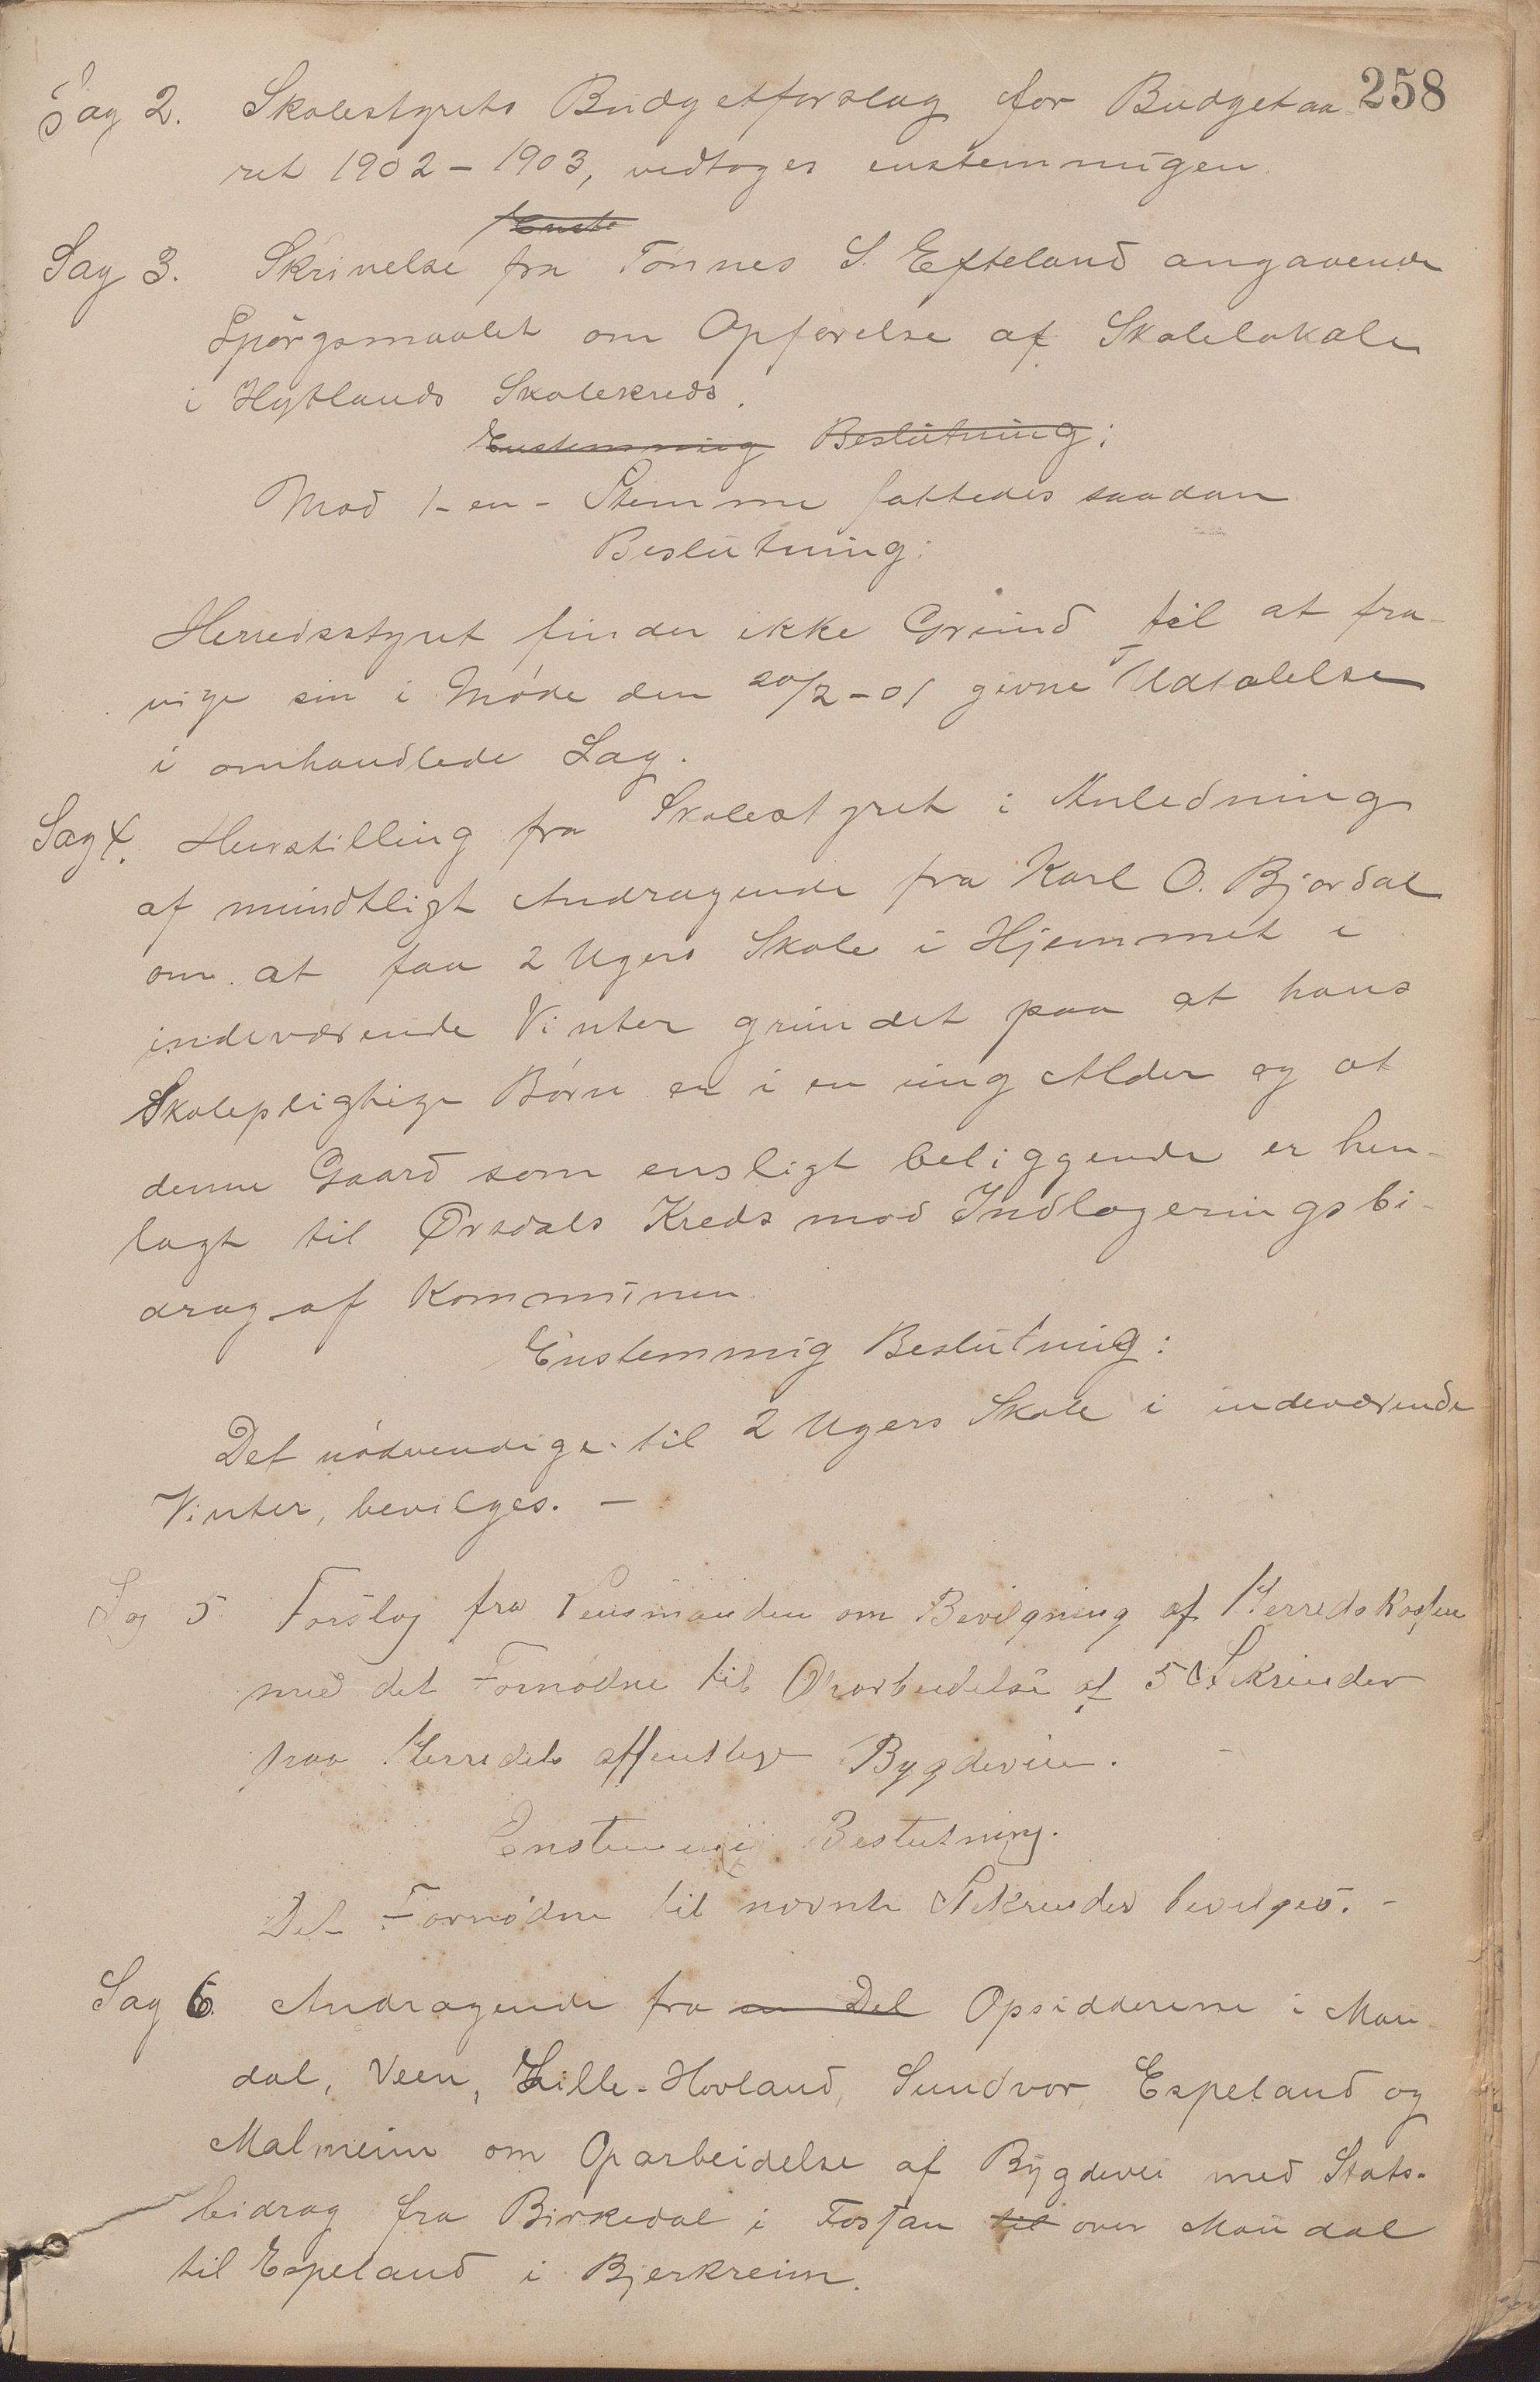 258
Sag 2. Skolestyrets Budgetforslag for Budgetaa
ret 1902 – 1903, vedtoges enstemmigen.
Enste
Sag 3. Skrivelse fra Tønnes S. Efteland angaaende
Spørgsmaalet om Opførelse af Skolelokale
i Hytlands Skolekreds.
Enstemmig Beslutning:
Mod 1- en - Stemme fattedes saadan
Beslutning:
Herredsstyret finder ikke Grund til at fra-
vige sin i Møde den 20/2-01 givne Udtalelse
i omhandlede Sag.
Sag 4. Henstilling fra Skolestyret i Anledning
af mundtligt Andragende fra Karl O. Bjordal
om at faa 2 Ugers Skole i Hjemmet i
indeværende Vinter grundet paa at hans
Skolepligtige Børn er i en ung Alder og at
denne Gaard som ensligt beliggende er hen-
lagt til Ørsdals Kreds mod Indlogeringsbi-
drag af Kommunen.
Enstemmig Beslutning:
Det nødvendige til 2 Ugers Skole i indeværende
Vinter, bevilges. –
Sag 5 Forslag fra Lensmanden om Bevilgning af Herredskassen
med det Fornødne til Oparbeidelse af 5 Stikrender
paa Herredets offentlige Bygdeveie.
Enstemmig Beslutning.
Det Fornødne til nævnte Stikrender bevilges. –
Sag 6. Andragende fra en Del Opsidderene i Mau
dal, Veen, Lille-Hovland, Sundvor, Espeland og
Malmeim om Oparbeidelse af Bygdevei med Stats-
bidrag fra Birkedal i Fossan til over Maudal
til Espeland i Bjerkreim.